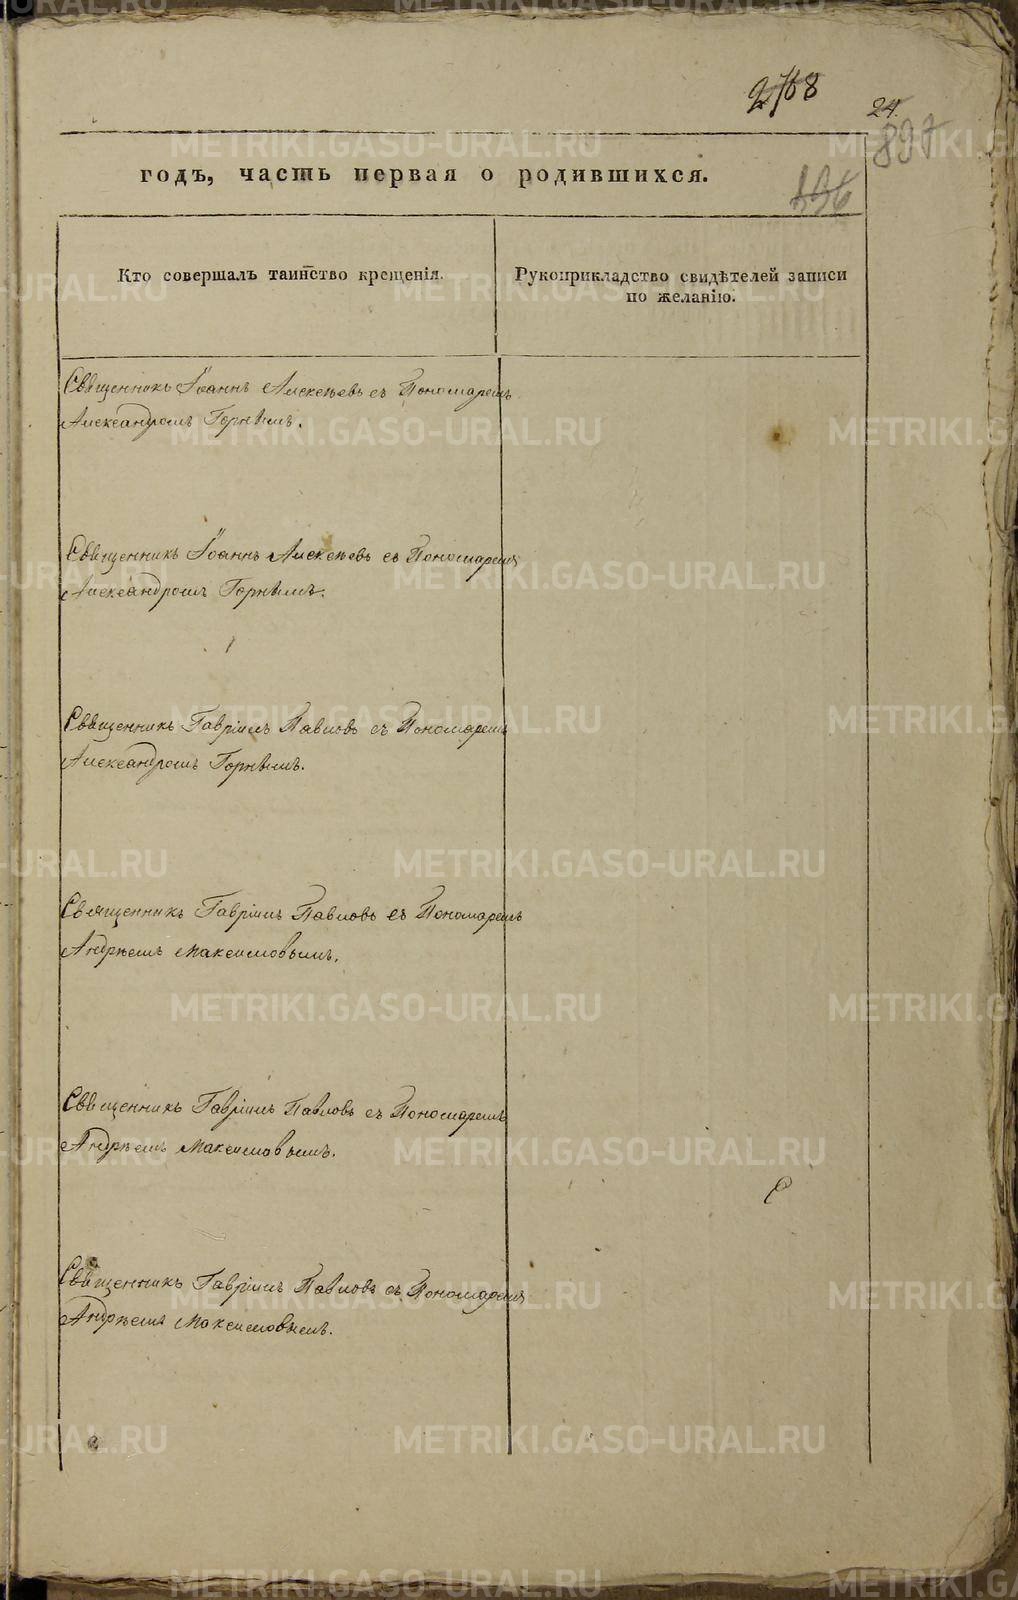 24.
897
годъ, часть первая о родившихся.
Кто совершалъ таинство крещенія.
Рукоприкладство свидѣтелей записи
по желанію.
Священникъ Іоаннъ Алексѣевъ съ Пономаремъ
Александромъ Горнымъ.
Священникъ Іоаннъ Алексѣевъ съ Пономаремъ
Александромъ Горнымъ.
Священникъ Гавріилъ Павловъ съ Пономаремъ
Александромъ Горнымъ.
Священникъ Гавріилъ Павловъ съ Пономаремъ
Андрѣемъ Максимовымъ.
Священникъ Гавріилъ Павловъ съ Пономаремъ
Андрѣемъ Максимовымъ.
Священникъ Гавріилъ Павловъ съ Пономаремъ
Андрѣемъ Максимовымъ.
METRIKI.GASO-URAL.RU